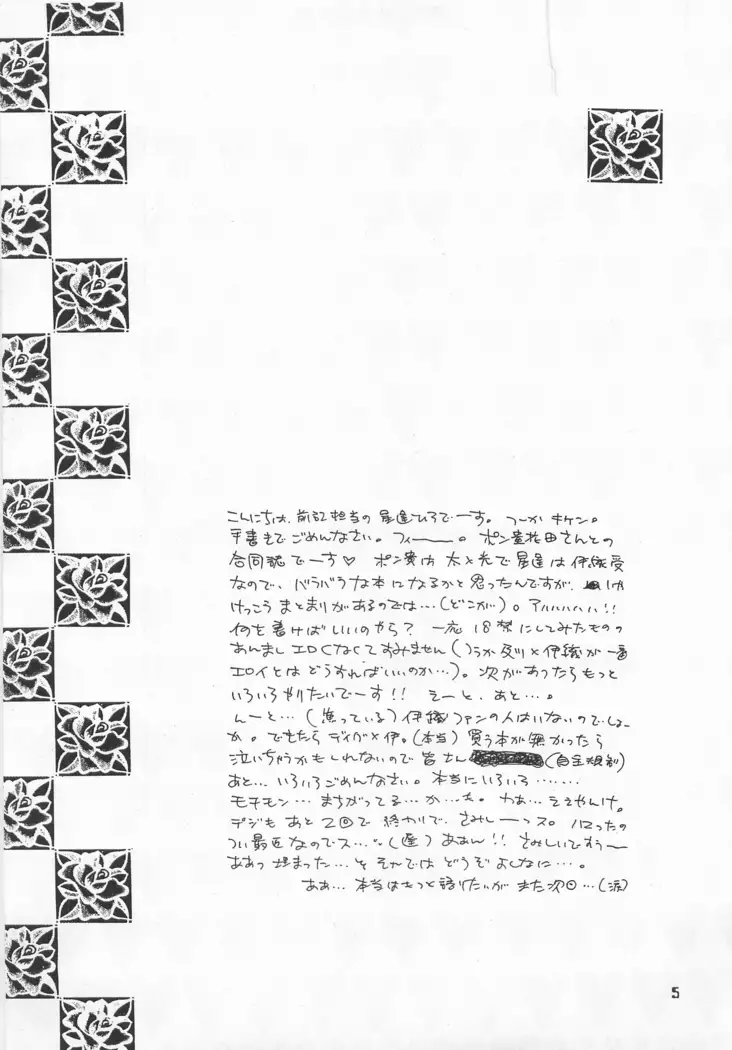 こんにちは、前記担当の星逢ひろでーす。つーかキケン。
手書きでごめんなさい。フィーー。ポン貴花田さんとの
合同誌でーす♡ ポン貴は太と光で星逢は伊織受
なので、バラバラな本になるかと思ったんですが、
けっこうまとまりがあるのでは…(どこが)。アハハハハ!!
何を書けばいいのやら? 一応18禁にしてみたものの
あんましエロくなくてすみません(つうか烈×伊織が一番
エロイとはどうすればいいのか…)。次があったらもっと
いろいろやりたいでーす!! えーと、あと…。
んーと…(焦っている)伊織ファンの人はいないのでしょー
か。できたら×伊。(本当)買う本が無かったら
泣いちゃうかもしれないので皆さん(自主規制)
あと…いろいろごめんなさい。本当にいろいろ……
モチモン…まちがってる…か…も。わぁ…ええやんけ。
デジもあと2回で終わりで、さみしーっス。ハマったの
つい最近なのでス…。(遅)ああん!!さみしいですぅー
ああっ埋まった…そそれではどうぞよしなに…。
ああ…本当はもっと語りたいがまた次回…(涙)
5